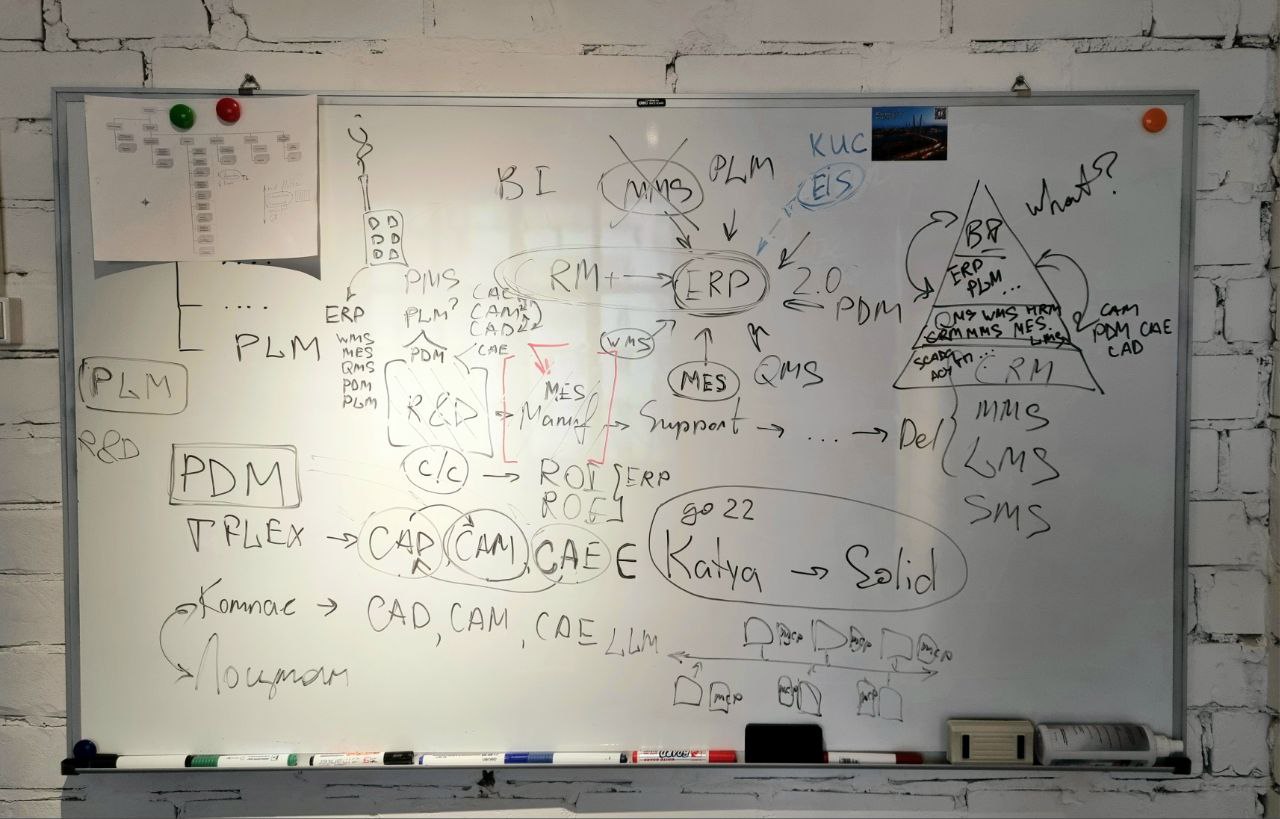 BI
MMS
PLM
КИС
EIS
What?
RM
ERP
2.0
PDM
WMS
MES
QMS
ERP
PLM...
QMS WMS HRM
CRM MMS MES
LMS
CRM
CAM
PDM CAE
CAD
MMS
LMS
SMS
ERP
WMS
MES
QMS
PDM
PLM
PMS
PLM?
PDM
CAE
CAM
CAD
CAE
....
PLM
PLM
R&D
R&D
MES
Manuf
Support
....
Del
c/c
ROI
ROE
ERP
PDM
TFLEX
CAD
CAM
CAE
E
go 22
Katya
Solid
Компас
CAD, CAM, CAE
LLM
Лоцман
мср
мср
мср
мср
мср
мср